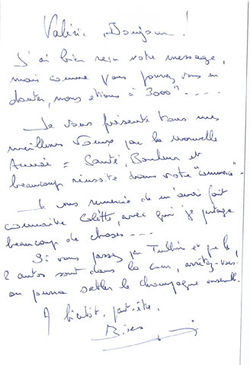 Valérie, Bonjour!
J'ai bien reçu votre message,
mais comme vous pouvez vous en
douter, nous étions à 3000m ....
Je vous présente tous mes
meilleurs Voeux pour la nouvelle
Année = Santé Bonheur et
beaucoup réussite dans votre
Je vous remercie de m'avoir fait
connaître Colette, avec qui je partage
beaucoup de choses ...
Si vous passez par Tullins et que les
2 autos sont dans la cour, arrêtez-vous!
on pourra sabler le champagne ensemble.
A bientôt, peut-être.
Bises